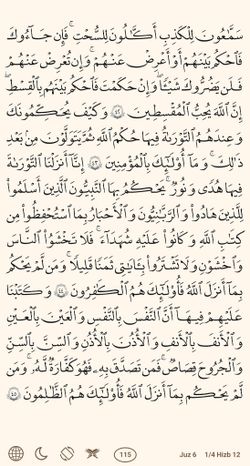 سَمَّٰعُونَ لِلْكَذِبِ أَكَّٰلُونَ لِلسُّحْتِ ۚ فَإِن جَآءُوكَ
فَٱحْكُم بَيْنَهُمْ أَوْ أَعْرِضْ عَنْهُمْ ۖ وَإِن تُعْرِضْ عَنْهُمْ
فَلَن يَضُرُّوكَ شَيْـًٔا ۖ وَإِنْ حَكَمْتَ فَٱحْكُم بَيْنَهُم بِٱلْقِسْطِ ۚ
إِنَّ ٱللَّهَ يُحِبُّ ٱلْمُقْسِطِينَ ٤٢ وَكَيْفَ يُحَكِّمُونَكَ
وَعِندَهُمُ ٱلتَّوْرَىٰةُ فِيهَا حُكْمُ ٱللَّهِ ثُمَّ يَتَوَلَّوْنَ مِنۢ بَعْدِ
ذَٰلِكَ ۚ وَمَآ أُو۟لَٰٓئِكَ بِٱلْمُؤْمِنِينَ ٤٣ إِنَّآ أَنزَلْنَا ٱلتَّوْرَىٰةَ
فِيهَا هُدًى وَنُورٌ ۚ يَحْكُمُ بِهَا ٱلنَّبِيُّونَ ٱلَّذِينَ أَسْلَمُوا۟
لِلَّذِينَ هَادُوا۟ وَٱلرَّبَّٰنِيُّونَ وَٱلْأَحْبَارُ بِمَا ٱسْتُحْفِظُوا۟ مِن
كِتَٰبِ ٱللَّهِ وَكَانُوا۟ عَلَيْهِ شُهَدَآءَ ۚ فَلَا تَخْشَوُا۟ ٱلنَّاسَ
وَٱخْشَوْنِ وَلَا تَشْتَرُوا۟ بِـَٔايَٰتِى ثَمَنًا قَلِيلًا ۚ وَمَن لَّمْ يَحْكُم
بِمَآ أَنزَلَ ٱللَّهُ فَأُو۟لَٰٓئِكَ هُمُ ٱلْكَٰفِرُونَ ٤٤ وَكَتَبْنَا
عَلَيْهِمْ فِيهَآ أَنَّ ٱلنَّفْسَ بِٱلنَّفْسِ وَٱلْعَيْنَ بِٱلْعَيْنِ
وَٱلْأَنفَ بِٱلْأَنفِ وَٱلْأُذُنَ بِٱلْأُذُنِ وَٱلسِّنَّ بِٱلسِّنِّ
وَٱلْجُرُوحَ قِصَاصٌ ۚ فَمَن تَصَدَّقَ بِهِۦ فَهُوَ كَفَّارَةٌ لَّهُۥ ۚ وَمَن
لَّمْ يَحْكُم بِمَآ أَنزَلَ ٱللَّهُ فَأُو۟لَٰٓئِكَ هُمُ ٱلظَّٰلِمُونَ ٤٥
115 Juz 6 1/4 Hizb 12